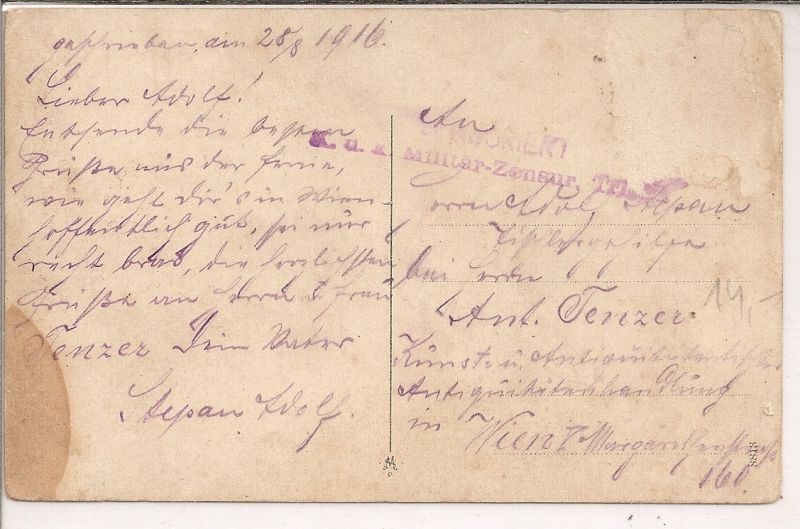 geschrieben, am 28/8 1916.
Lieber Adolf!
Entsende die besten
Grüße aus der Ferne,
wie geht dir's in Wien
hoffentlich gut, sei nur
recht brav, die herzlichsten
Grüße an Herrn & Frau
Tenzer Dein Vater
Stepan Adolf.
An
ZENSURIERT
K. u. K. Militär-Zensur
Herrn Adolf Stepan
Tischlergehilfe
bei Herrn
Ant. Tenzer
Kunst- u. Antiquitätentischler
Antiquitätenhandlung
in Wien Margarethenstrasse
160.
14,-
8818